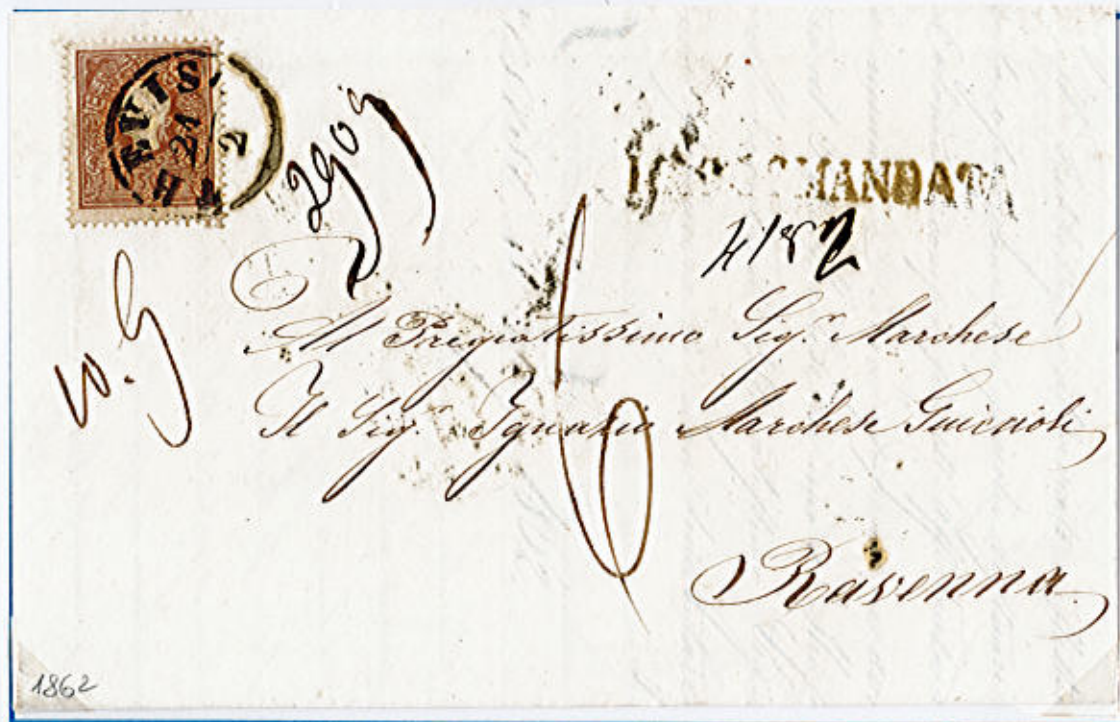 21
2
2909
RACCOMANDATA
4182
W. G
6
All Pregiatissimo Sigr. Marchese
Il Sigr. Ignazio Marchese Guiccioli
Ravenna
1862